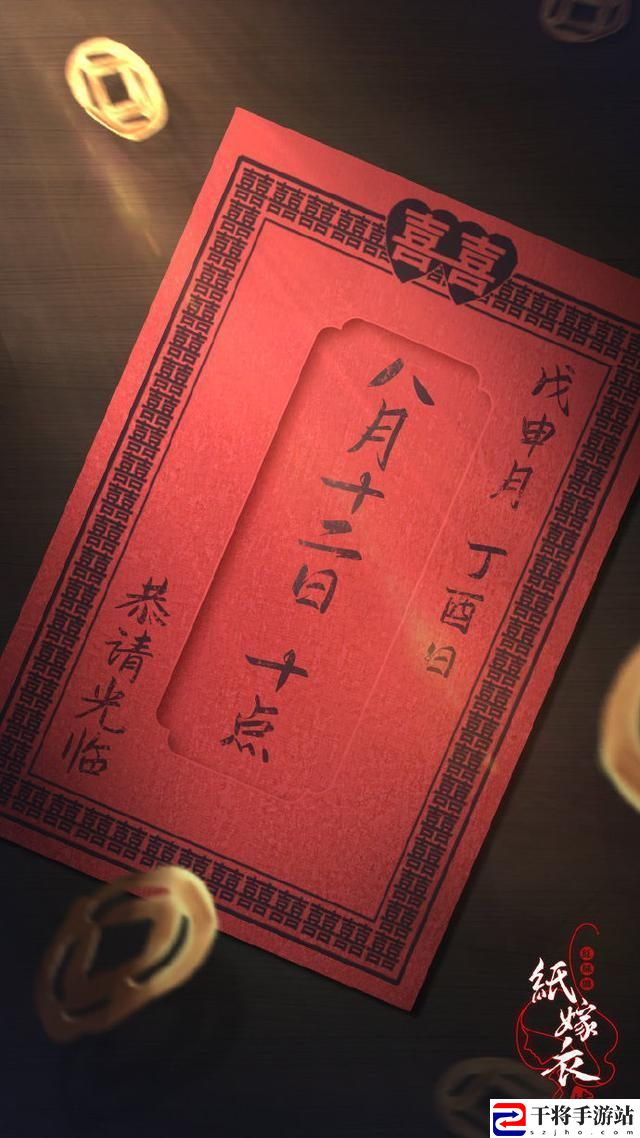 囍
戊申月 丁酉日
八月十二日 十点
恭请光临
紙嫁衣
干将手游站
szjho.com